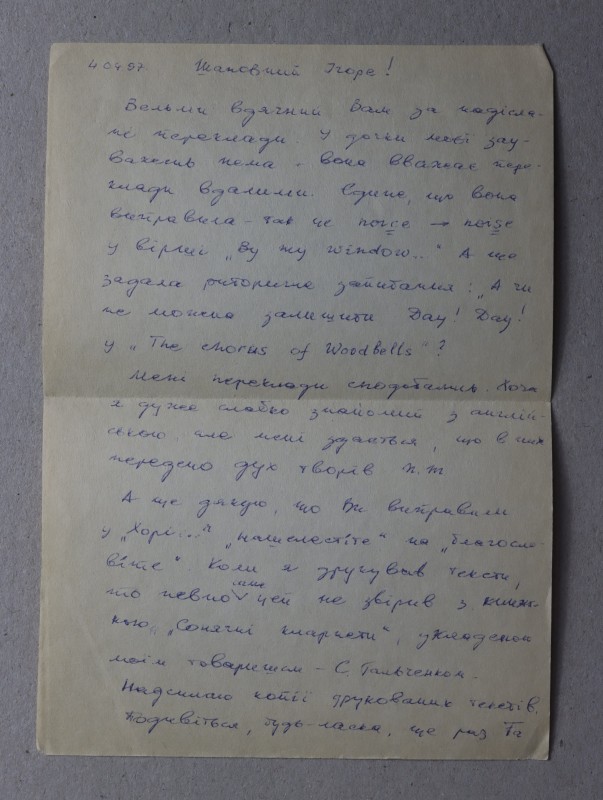 4.04.97 Шановний Ігоре!
Вельми вдячний Вам за надісла-
ні переклади. У дочки моєї зау-
важень нема - вона вважає пере-
клади вдалими. Єдине, що вона
виправила - так це noice → noise
у вірші „By my window..." А ще
задала риторичне запитання: „А чи
не можна залишити Day! Day!
у „The chorus of Woodbells"?
Мені переклади сподобались. Хоча
я дуже слабко знайомий з англій-
ською, але мені здається, що в них
передано дух творів П.Т
А ще дякую, що Ви виправили
у „Хорі..." на „благосло-
віте". Коли я друкував тексти,
то певно цей не звірив з книж-
кою „Сонячні кларнети", укладеною
моїм товаришем - С. Гальченком.
Надсилаю копії друкованих текстів.
Подивіться, будь-ласка, ще раз та